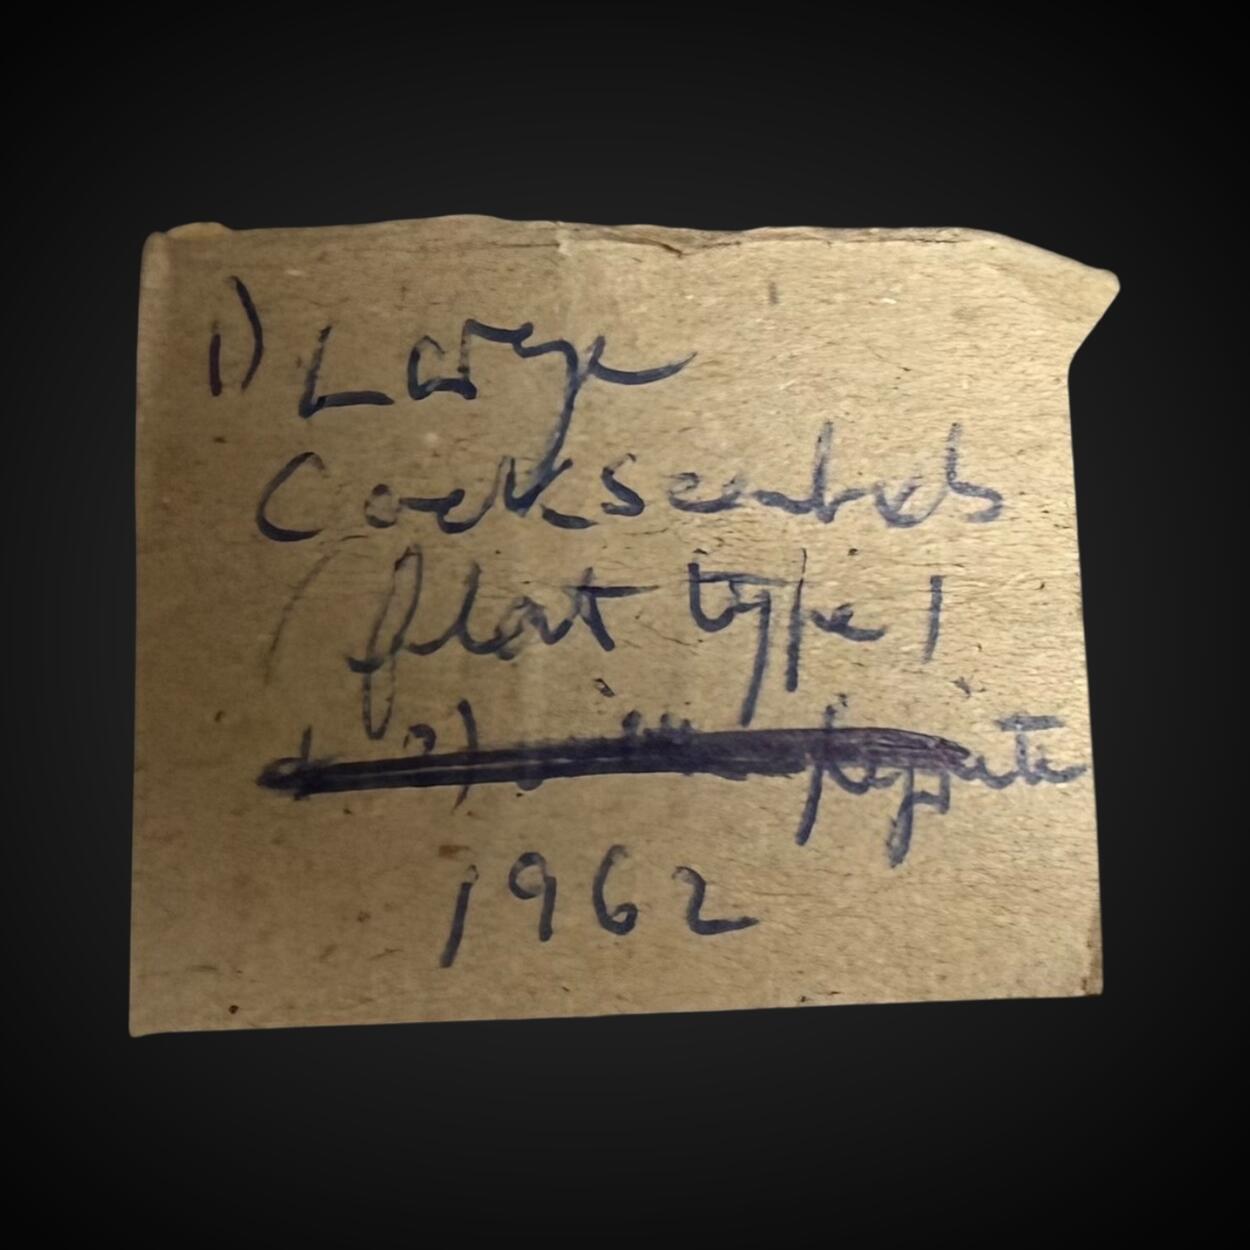 1) Large
Cockscombs
(flat type)
1962